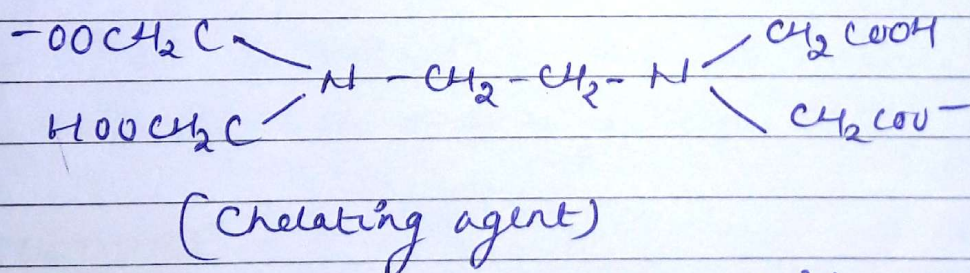 -OOCH₂C CH₂COOH
N-CH₂-CH₂-N
HOOCH₂C CH₂COO⁻
(Chelating agent)